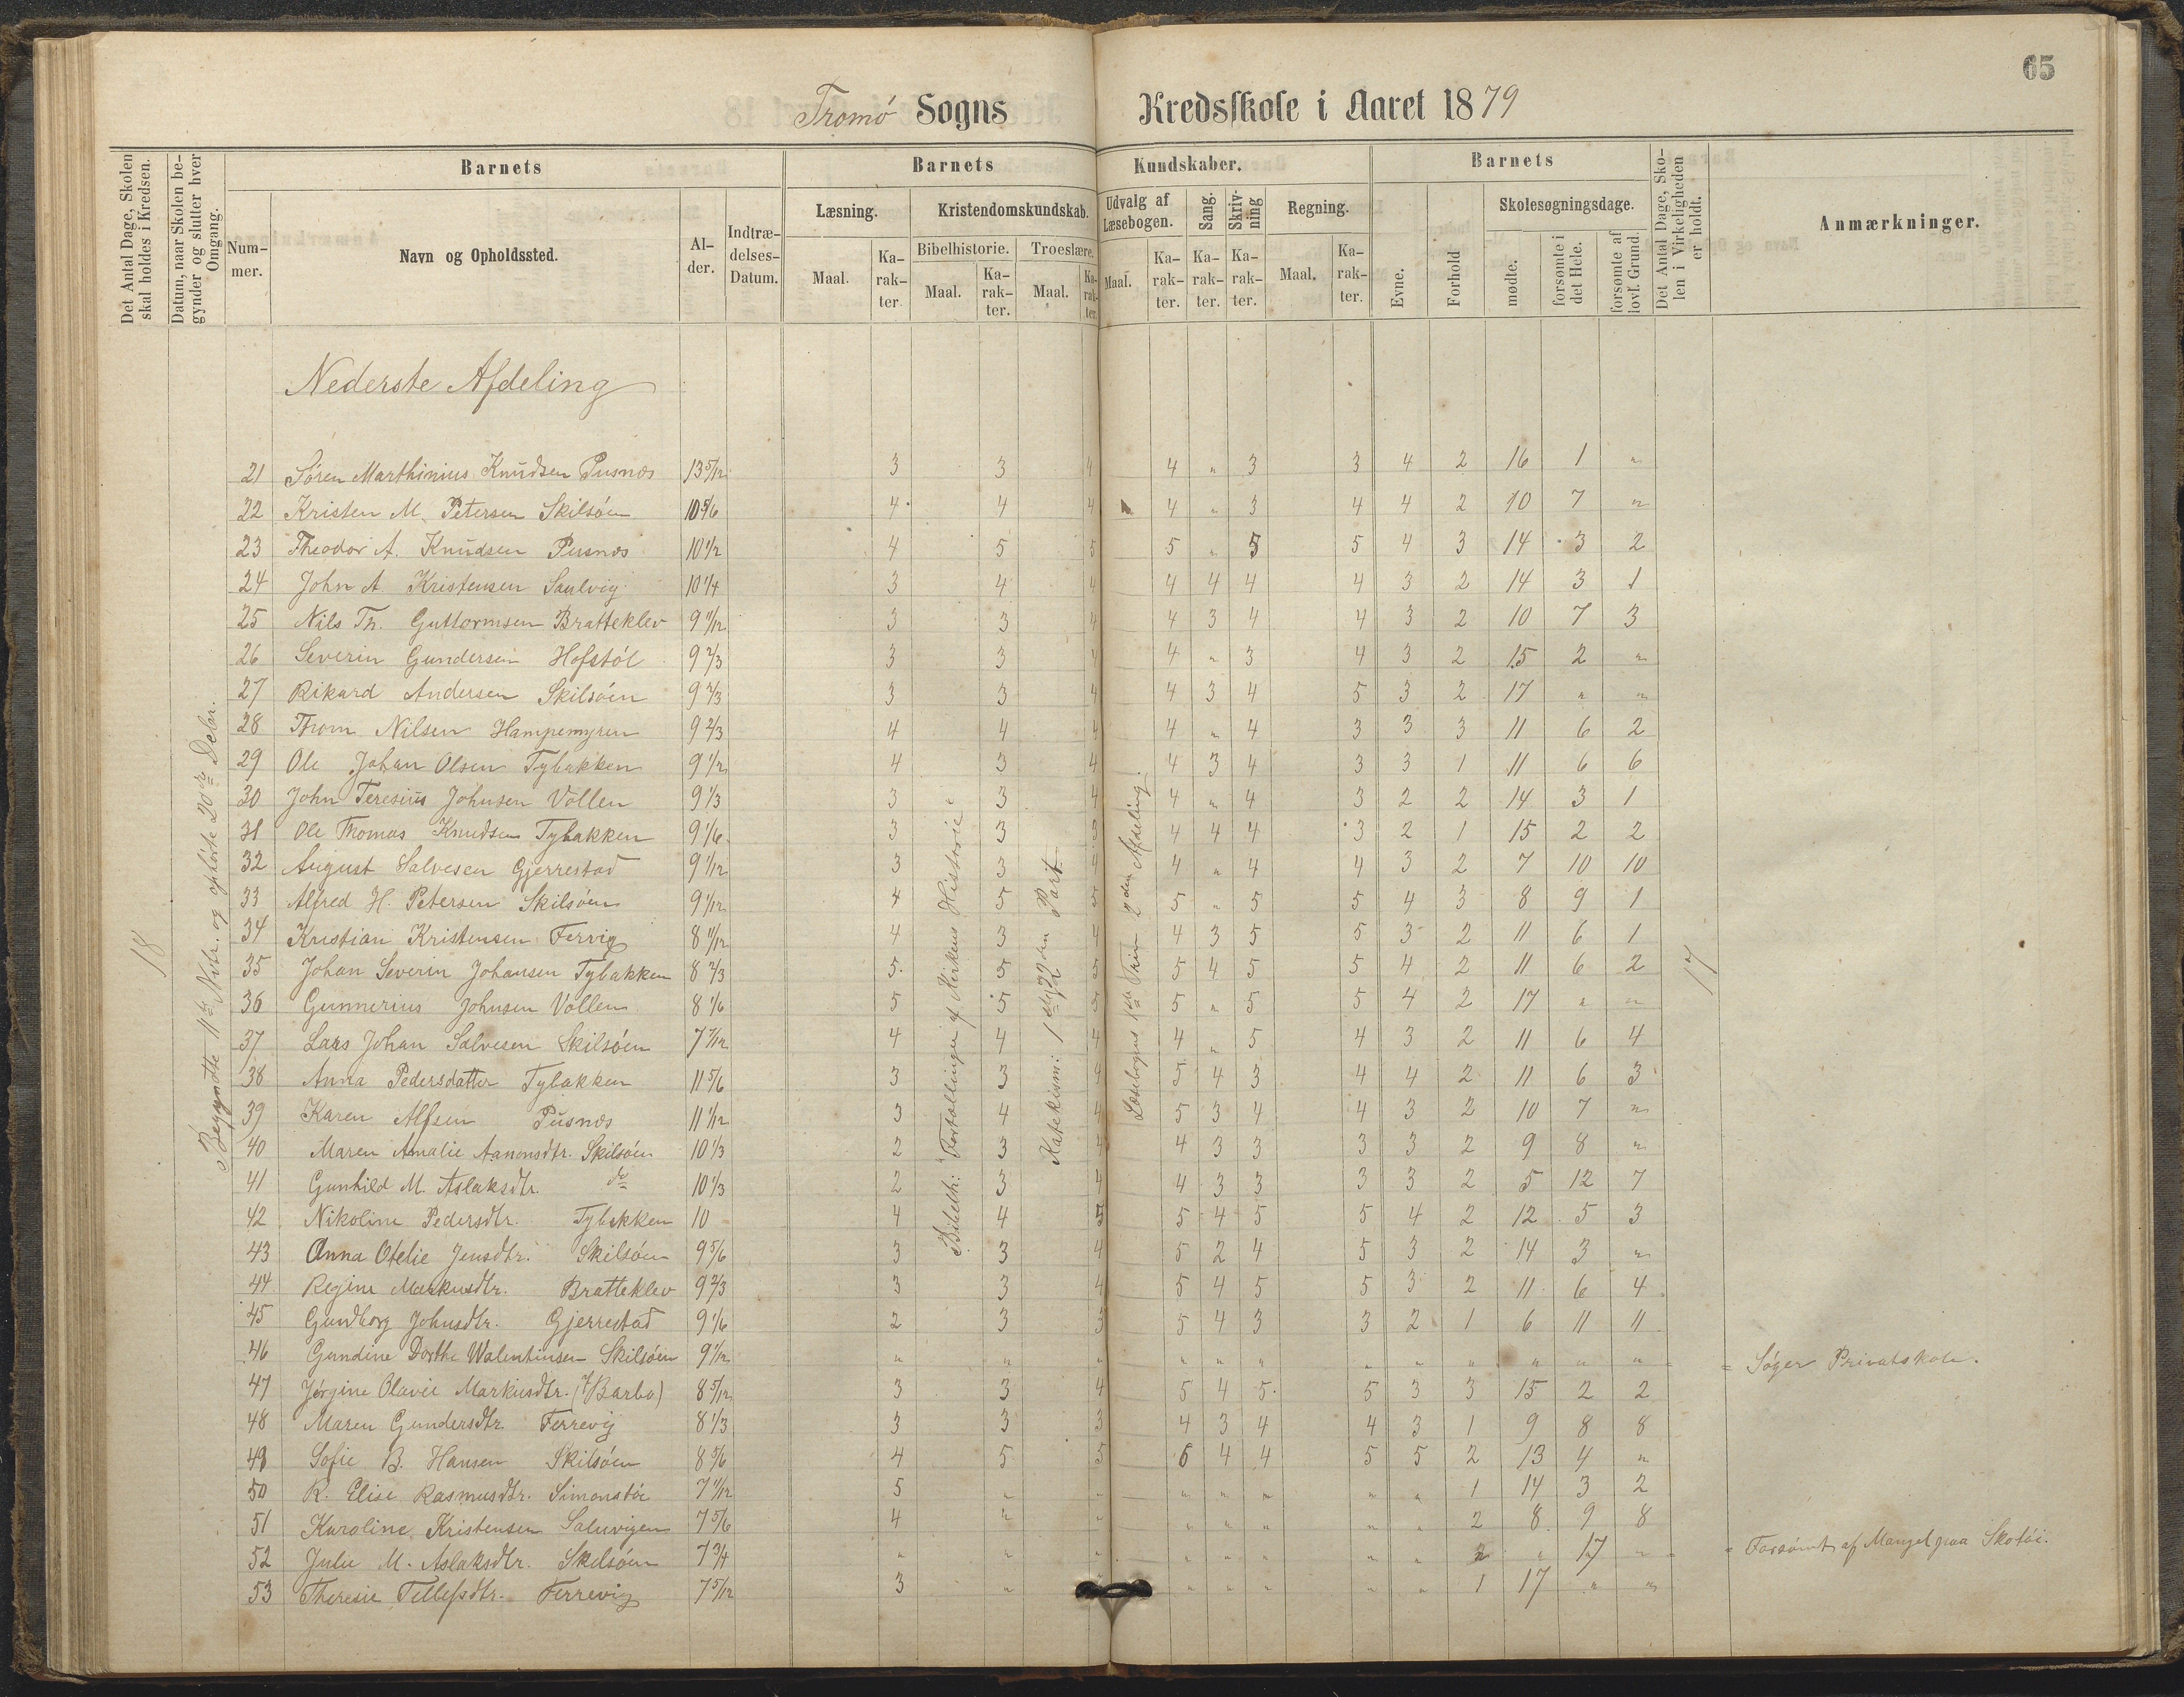 65
Tromø Sogns Kredsskole i Aaret 1879
Det Antal Dage, Skolen skal holdes i Kredsen.
Datum, naar Skolen begynder og slutter hver Omgang.
Barnets
Nummer.
Navn og Opholdssted.
Alder.
Indtrædelses-Datum.
Barnets Kundskaber.
Læsning.
Maal.
Karakter.
Kristendomskundskab.
Bibelhistorie.
Maal.
Karakter.
Troeslære.
Maal.
Karakter.
Udvalg af Læsebogen.
Maal.
Karakter.
Sang.
Karakter.
Skrivning
Karakter.
Regning.
Maal.
Karakter.
Barnets
Evne.
Forhold
Skolesøgningsdage.
mødte.
forsømte i det Hele.
forsømte af lovl. Grund.
Det Antal Dage, Skolen i Virkeligheden er holdt.
Anmærkninger.
18
Begyndte 11te Novbr. og ophørte 20de Decbr.
Bibelh: Fortællinger af Kirkens Historie
Læsebogens 1ste Trin 2den Afdeling.
17
Nederste Afdeling
21 Søren Marthinius Knudsen Pusnæs 13 5/12 3 3 4 4 " 3 3 4 2 16 1 "
22 Kristen M. Petersen Skilsøen 10 5/6 4 4 4 4 " 3 4 4 2 10 7 "
23 Theodor A. Knudsen Pusnæs 10 1/2 4 5 5 5 " 5 5 4 3 14 3 2
24 John A. Kristensen Saulvig 10 1/4 3 4 4 4 4 4 4 3 2 14 3 1
25 Nils Th. Guttormsen Bratteklev 9 11/12 3 3 4 4 3 4 4 3 2 10 7 3
26 Severin Gundersen Hofstøl 9 2/3 3 3 4 4 " 3 4 3 2 15 2 "
27 Rikard Andersen Skilsøen 9 2/3 3 3 4 4 3 4 5 3 2 17 " "
28 Thom Nilsen Hampemyren 9 2/3 4 4 4 4 " 4 3 3 3 11 6 2
29 Ole Johan Olsen Tybakken 9 1/2 4 3 4 4 3 4 3 3 1 11 6 6
30 John Teresius Johnsen Vollen 9 1/3 3 3 4 4 " 4 3 2 2 14 3 1
31 Ole Thomas Knudsen Tybakken 9 1/6 3 3 3 4 4 4 3 2 1 15 2 2
32 August Salvesen Gjerrestad 9 1/12 3 3 4 4 " 4 4 3 2 7 10 10
33 Alfred H. Petersen Skilsøen 9 1/12 4 5 5 5 " 5 5 4 3 8 9 1
34 Kristian Kristensen Fervig 8 11/12 4 3 4 4 3 5 5 3 2 11 6 1
35 Johan Severin Johansen Tybakken 8 2/3 5 5 5 5 4 5 5 4 2 11 6 2
36 Gunnerius Johnsen Vollen 8 1/6 5 5 5 5 " 5 5 4 2 17 " "
37 Lars Johan Salvesen Skilsøen 7 7/12 4 4 4 4 " 5 4 3 2 11 6 4
38 Anna Pedersdatter Tybakken 11 5/6 3 3 4 5 4 3 4 4 2 11 6 3
39 Karen Alfsen Pusnæs 11 1/12 3 4 4 5 3 4 4 3 2 10 7 "
40 Maren Amalie Aanonsdtr. Skilsøen 10 1/3 2 3 4 4 3 3 3 3 2 9 8 "
41 Gunhild M. Aslaksdtr. do 10 1/3 2 3 4 4 3 3 3 3 2 5 12 7
42 Nikoline Pedersdtr. Tybakken 10 4 4 5 5 4 5 5 4 2 12 5 3
43 Anna Otelie Jensdtr. Skilsøen 9 5/6 3 3 4 5 2 4 5 3 2 14 3 "
44 Regine Markusdtr. Bratteklev 9 2/3 3 3 4 5 4 5 5 3 2 11 6 4
45 Gundborg Johnsdtr. Gjerrestad 9 1/6 2 3 3 5 4 3 3 2 1 6 11 11
46 Gundine Dorthe Walentinsen Skilsøen 9 1/12 " " " " " " " " " " " " = Søger Privatskole.
47 Jørgine Olavie Markusdtr. (f/Barbo) 8 5/12 3 3 4 5 4 5 5 3 3 15 2 2
48 Maren Gundersdtr. Ferrevig 8 1/3 3 3 3 4 3 4 4 3 1 9 8 8
49 Sofie B. Hansen Skilsøen 8 5/6 4 5 5 6 4 4 5 5 2 13 4 "
50 R. Elise Rasmusdtr. Simonstøe 7 11/12 5 " " " " " " " 1 14 3 2
51 Karoline Kristensen Saluvigen 7 5/6 4 " " " " " " " 2 8 9 8
52 Julie M. Aslaksdtr. Skilsøen 7 3/4 " " " " " " " " 2 " 17 " = Forsømt af Mangel paa Skotøi.
53 Theresie Tellefsdtr. Ferrevig 7 5/12 3 " " " " " " " 1 17 " "